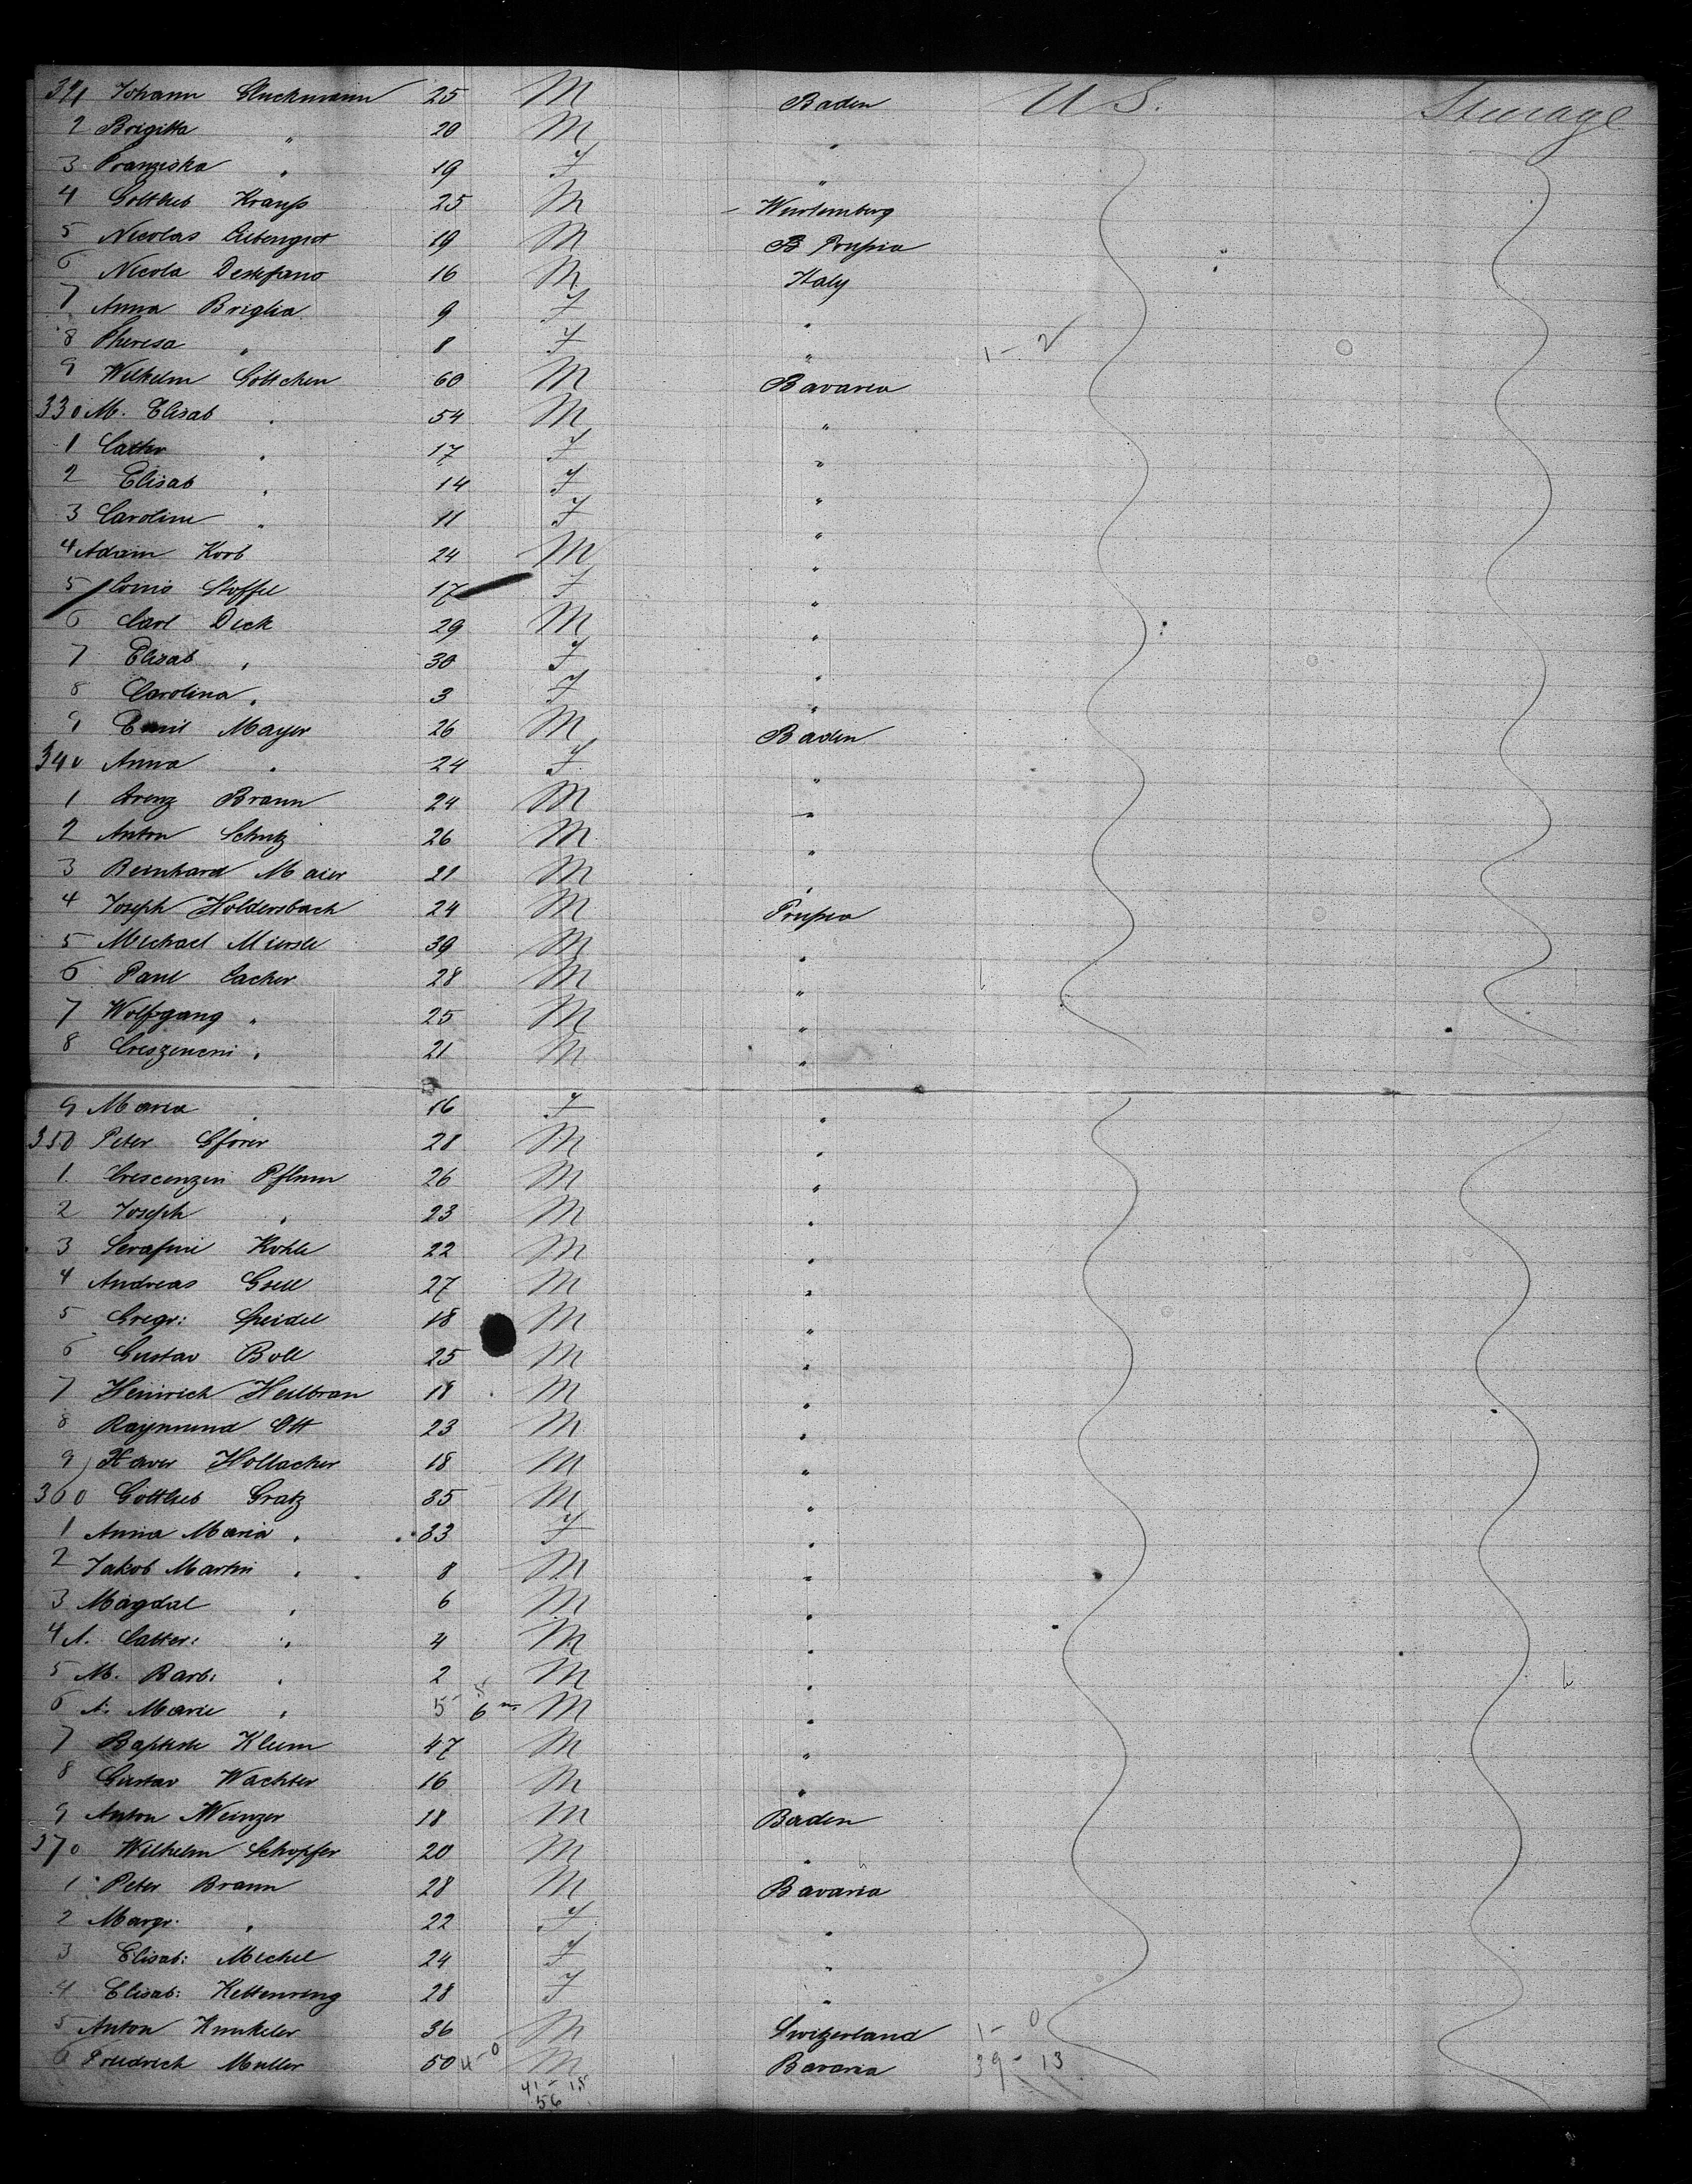 321 Johann Gluckmann 25 M Baden U S. Steerage
2 Brigitta " 20 M "
3 Franziska " 19 F "
4 Gottlieb Krauss 25 M Wurtemberg
5 Nicolas 19 M Prussia
6 Nicola Destefano 16 M Italy
7 Anna Briglia 9 F "
8 Theresa " 8 F " 1 - 2
9 Wilhelm Göttchen 60 M Bavaria
330 M. Elisab " 54 M "
1 Cather " 17 F "
2 Elisab " 14 F "
3 Caroline " 11 F "
4 Adam Korb 24 M "
5 Louis Stoffel 17 F "
6 Carl Dick 29 M "
7 Elisab " 30 F "
8 Carolina " 3 F "
9 Emil Mayer 26 M Baden
340 Anna " 24 F "
1 Lorenz Braun 24 M "
2 Anton Schutz 26 M "
3 Reinhard Maier 21 M "
4 Joseph Holdersbach 24 M Prussia
5 Michael 39 M "
6 Paul Lacher 28 M "
7 Wolfgang " 25 M "
8 21 M "
9 Maria " 16 F "
350 Peter Gförer 28 M "
1 Crescenzin Pflum 26 M "
2 Joseph " 23 M "
3 Serafini Kohle 22 M "
4 Andreas Gsell 27 M "
5 Gregr: Speidel 18 M "
6 Gustav Boll 25 M "
7 Heinrich Heilbran 18 M "
8 Raymund Ott 23 M "
9 Xaver Hollacher 18 M "
360 Gottlieb Gratz 35 M "
1 Anna Maria " 33 F "
2 Jakob Martin " 8 M "
3 Magdal " 6 M "
4 A. Cather: " 4 M "
5 M. Barb: " 2 M "
6 A. Marie " 5 6 m M "
7 Baptiste Kleim 47 M "
8 Gustav Wachter 16 M "
9 Anton Weinzer 18 M Baden
370 Wilhelm Schopfer 20 M "
1 Peter Braun 28 M Bavaria
2 Margr. " 22 F "
3 Elisab: Michel 24 F "
4 Elisab: Kettenring 28 F "
5 Anton Kunkeler 36 M Switzerland 1 - 0
6 Friedrich Muller 50 4 - 0 M Bavaria 39 - 13
41 - 15
56